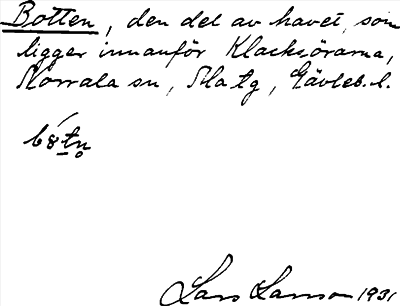 Botten, den del av havet, som
ligger innanför Klacksörarna,
Norrala sn, Ala tg, Gävleb. l.
Lars Larsson 1931